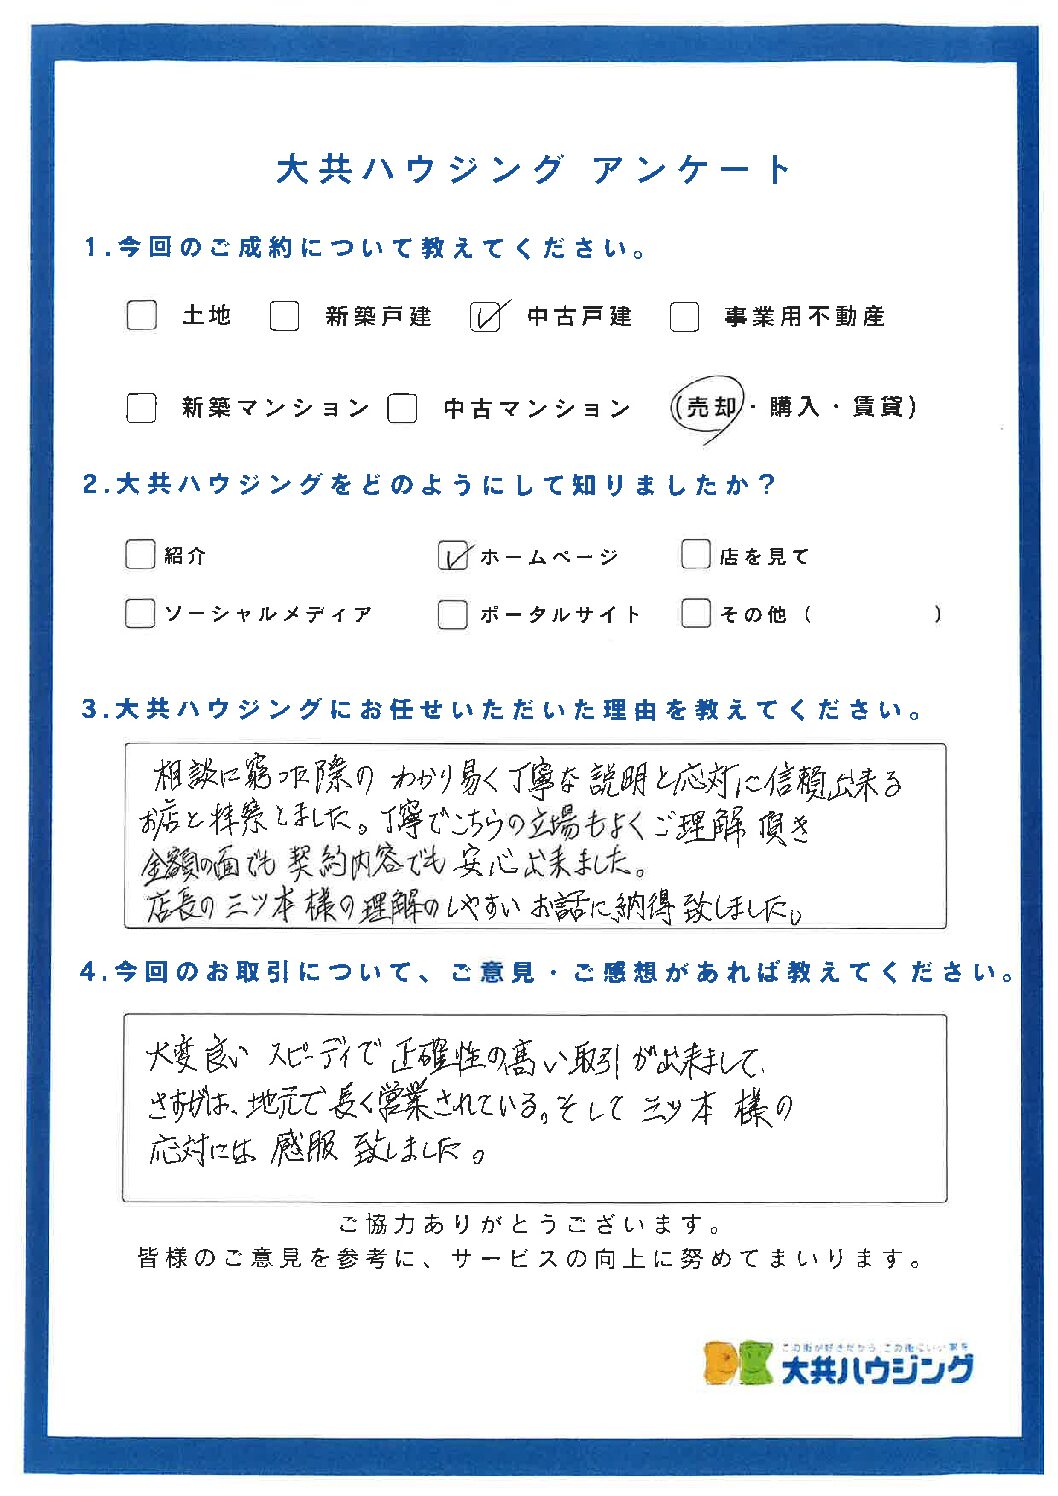 大共ハウジング アンケート
1.今回のご成約について教えてください。
土地 新築戸建 中古戸建 事業用不動産
新築マンション 中古マンション (売却・購入・賃貸)
2.大共ハウジングをどのようにして知りましたか？
紹介 ホームページ 店を見て
ソーシャルメディア ポータルサイト その他（ ）
3.大共ハウジングにお任せいただいた理由を教えてください。
相談に窺った際の わかり易く丁寧な説明と応対に信頼出来る
お店と拝察しました。丁寧でこちらの立場もよくご理解頂き
金額の面でも契約内容でも安心出来ました。
店長の三ツ本様の理解のしやすいお話に納得致しました。
4.今回のお取引について、ご意見・ご感想があれば教えてください。
大変良い スピーディで正確性の高い取引が出来まして、
さすがは、地元で長く営業されている。そして三ツ本様の
応対には感服致しました。
ご協力ありがとうございます。
皆様のご意見を参考に、サービスの向上に努めてまいります。
この街が好きだから、この街にいい家を
大共ハウジング